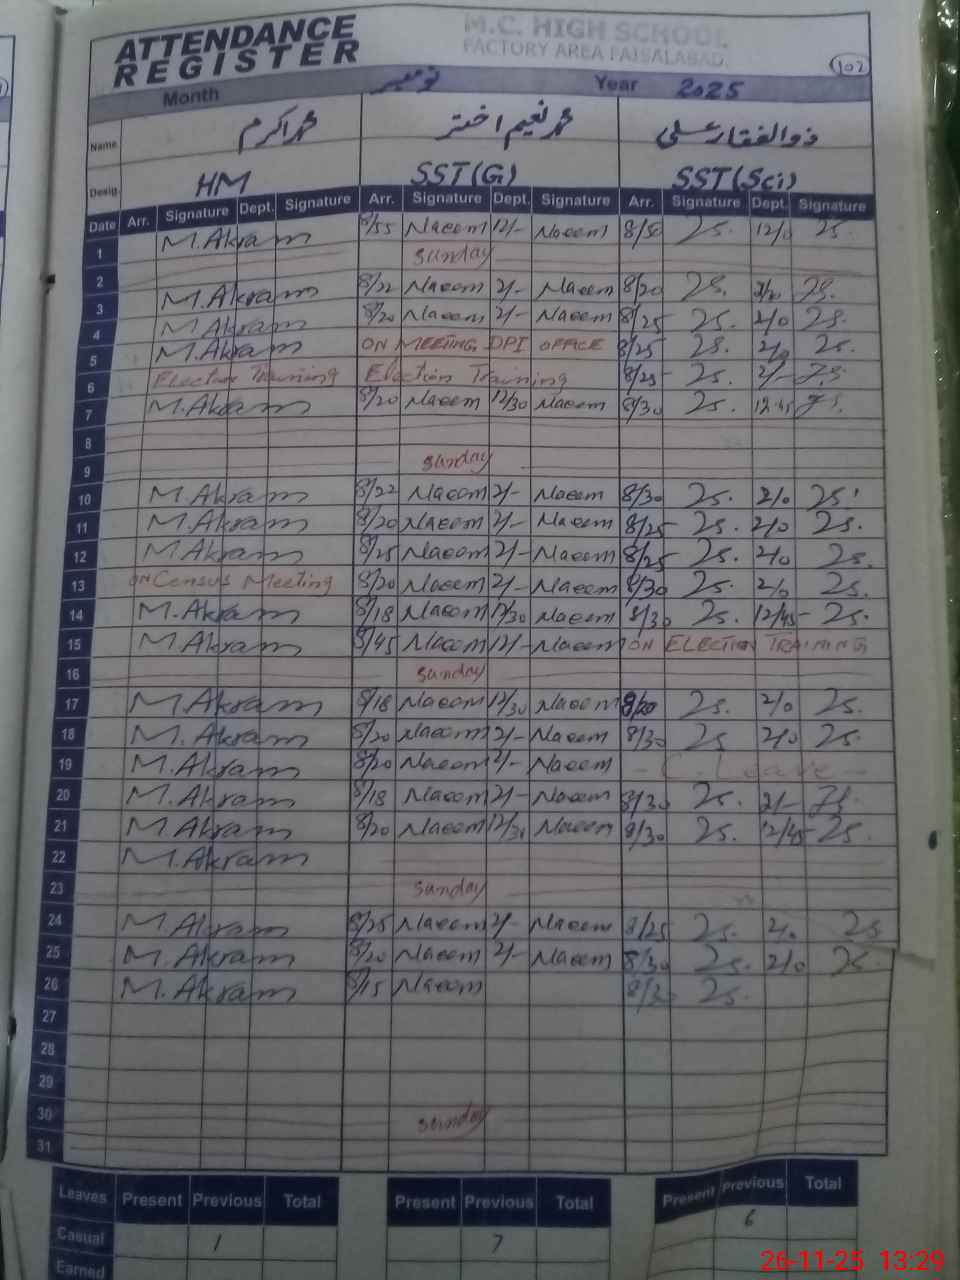 ATTENDANCE REGISTER
M.C. HIGH SCHOOL
FACTORY AREA FAISALABAD.
102
Month نومبر Year 2025
Name محمد اکرم محمد نعیم اختر ذوالفقار علی
Desig. HM SST(G) SST(Sci)
Date Arr. Signature Dept. Signature Arr. Signature Dept. Signature Arr. Signature Dept. Signature
1 M.Akram 8/55 Naeem 12/- Naeem 8/50 25. 12/0 25.
2 Sunday
3 M.Akram 8/22 Naeem 2/- Naeem 8/20 25. 2/0
4 M.Akram 8/20 Naeem 2/- Naeem 8/25 25. 2/0 25.
5 M.Akram ON MEETING DPI OFFICE 8/25 25. 2/0 25.
6 Election Training Election Training 8/25 25. 2/-
7 M.Akram 8/20 Naeem 12/30 Naeem 8/30 25. 12.45
8
9 Sunday
10 M.Akram 8/22 Naeem 2/- Naeem 8/30 25. 2/0 25.
11 M.Akram 8/20 Naeem 2/- Naeem 8/25 25. 2/0 25.
12 M.Akram 8/25 Naeem 2/- Naeem 8/25 25. 2/0 25.
13 on Census Meeting 8/20 Naeem 2/- Naeem 8/30 25. 2/0 25.
14 M.Akram 8/18 Naeem 12/30 Naeem 8/30 25. 12/45 25.
15 M.Akram 8/45 Naeem 12/- Naeem ON ELECTION TRAINING
16 Sunday
17 M.Akram 8/18 Naeem 12/30 Naeem 8/20 25. 2/0 25.
18 M.Akram 8/20 Naeem 2/- Naeem 8/30 25 2/0 25.
19 M.Akram 8/20 Naeem 2/- Naeem - C. Leave -
20 M.Akram 8/18 Naeem 2/- Naeem 8/30 25. 2/-
21 M.Akram 8/20 Naeem 12/30 Naeem 8/30 25. 12/45 25.
22 M.Akram
23 Sunday
24 M.Akram 8/25 Naeem 2/- Naeem 8/25 25. 2/0 25
25 M.Akram 8/20 Naeem 2/- Naeem 8/30 25. 2/0 25.
26 M.Akram 8/15 Naeem 8/30 25.
27
28
29
30 Sunday
31
Leaves Present Previous Total Present Previous Total Present Previous Total
Casual 1 7 6
Earned
26-11-25 13:29